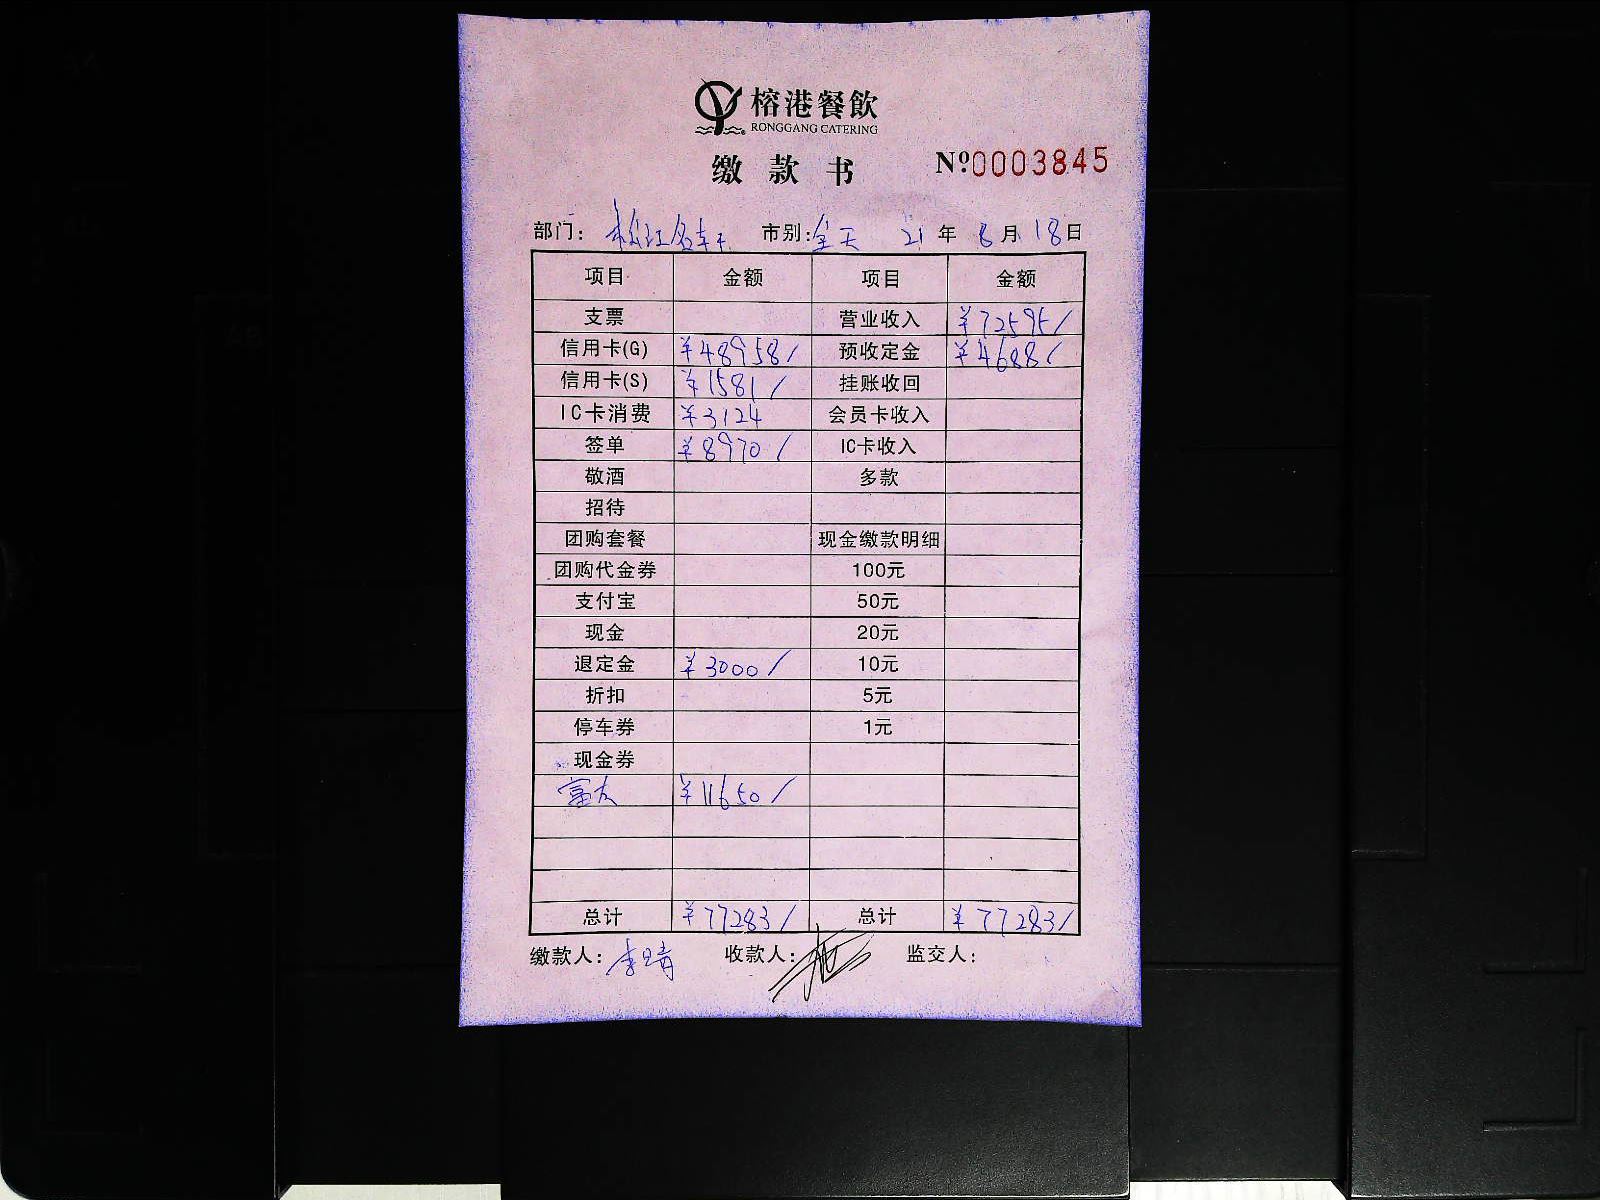 榕港餐飲
RONGGANG CATERING
缴款书 Nº0003845
部门: 松江名轩 市别: 全天 21年8月18日
项目 金额 项目 金额
支票 营业收入 ¥72595/
信用卡(G) ¥48958/ 预收定金 ¥4688/
信用卡(S) ¥1581/ 挂账收回
IC卡消费 ¥3124 会员卡收入
签单 ¥8970/ IC卡收入
敬酒 多款
招待
团购套餐 现金缴款明细
团购代金券 100元
支付宝 50元
现金 20元
退定金 ¥3000/ 10元
折扣 5元
停车券 1元
现金券
富友 ¥11650/
总计 ¥77283/ 总计 ¥77283/
缴款人: 收款人: 监交人: